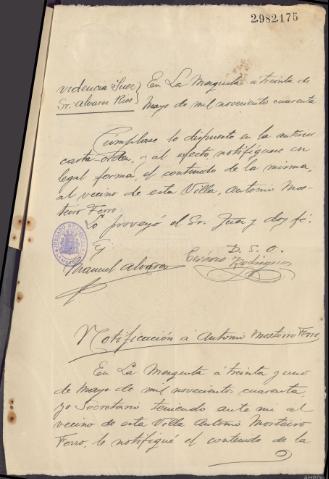 2982175
videncia Juez } En La Merquita á treinta de
Sr. Alvarez Pino } Mayo de mil novecientos cuarenta
Cumplase lo dispuesto en la anterior
carta-orden, y al efecto notifiquese en
legal forma, el contenido de la misma,
al vecino de esta Villa, Antonio Mos-
teiro Ferro.
Lo proveyó el Sr. Juez y doy fé.
D. S. O.
Manuel Alvarez
Rodriguez
Notificación á Antonio Mosteiro Ferro
En La Merquita á treinta y uno
de Mayo de mil novecientos cuarenta,
yo Secretario teniendo ante mi al
vecino de esta Villa Antonio Mosteiro
Ferro, le notifiqué el contenido de la